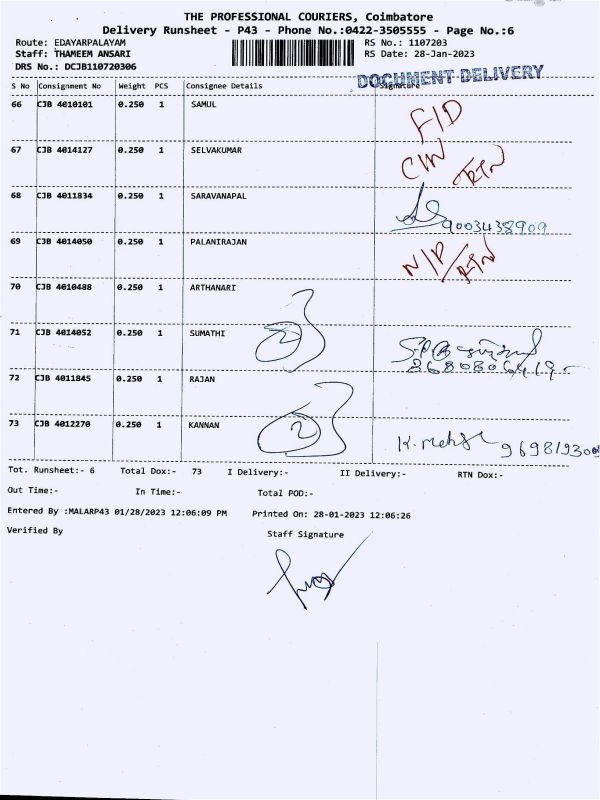 THE PROFESSIONAL COURIERS, Coimbatore
Delivery Runsheet - P43 - Phone No.:0422-3505555 - Page No.:6
Route: EDAYARPALAYAM RS No.: 1107203
Staff: THAMEEM ANSARI RS Date: 28-Jan-2023
DRS No.: DCJB110720306
DOCUMENT DELIVERY
S No Consignment No Weight PCS Consignee Details Signature
66 CJB 4010101 0.250 1 SAMUL F/D
67 CJB 4014127 0.250 1 SELVAKUMAR C/N RTN
68 CJB 4011834 0.250 1 SARAVANAPAL
9003438909
69 CJB 4014050 0.250 1 PALANIRAJAN N/P/RTN
70 CJB 4010488 0.250 1 ARTHANARI
71 CJB 4014052 0.250 1 SUMATHI 2
8680806419
72 CJB 4011845 0.250 1 RAJAN
73 CJB 4012270 0.250 1 KANNAN 2 K.
Tot. Runsheet:- 6 Total Dox:- 73 I Delivery:- II Delivery:- RTN Dox:-
Out Time:- In Time:- Total POD:-
Entered By :MALARP43 01/28/2023 12:06:09 PM Printed On: 28-01-2023 12:06:26
Verified By Staff Signature